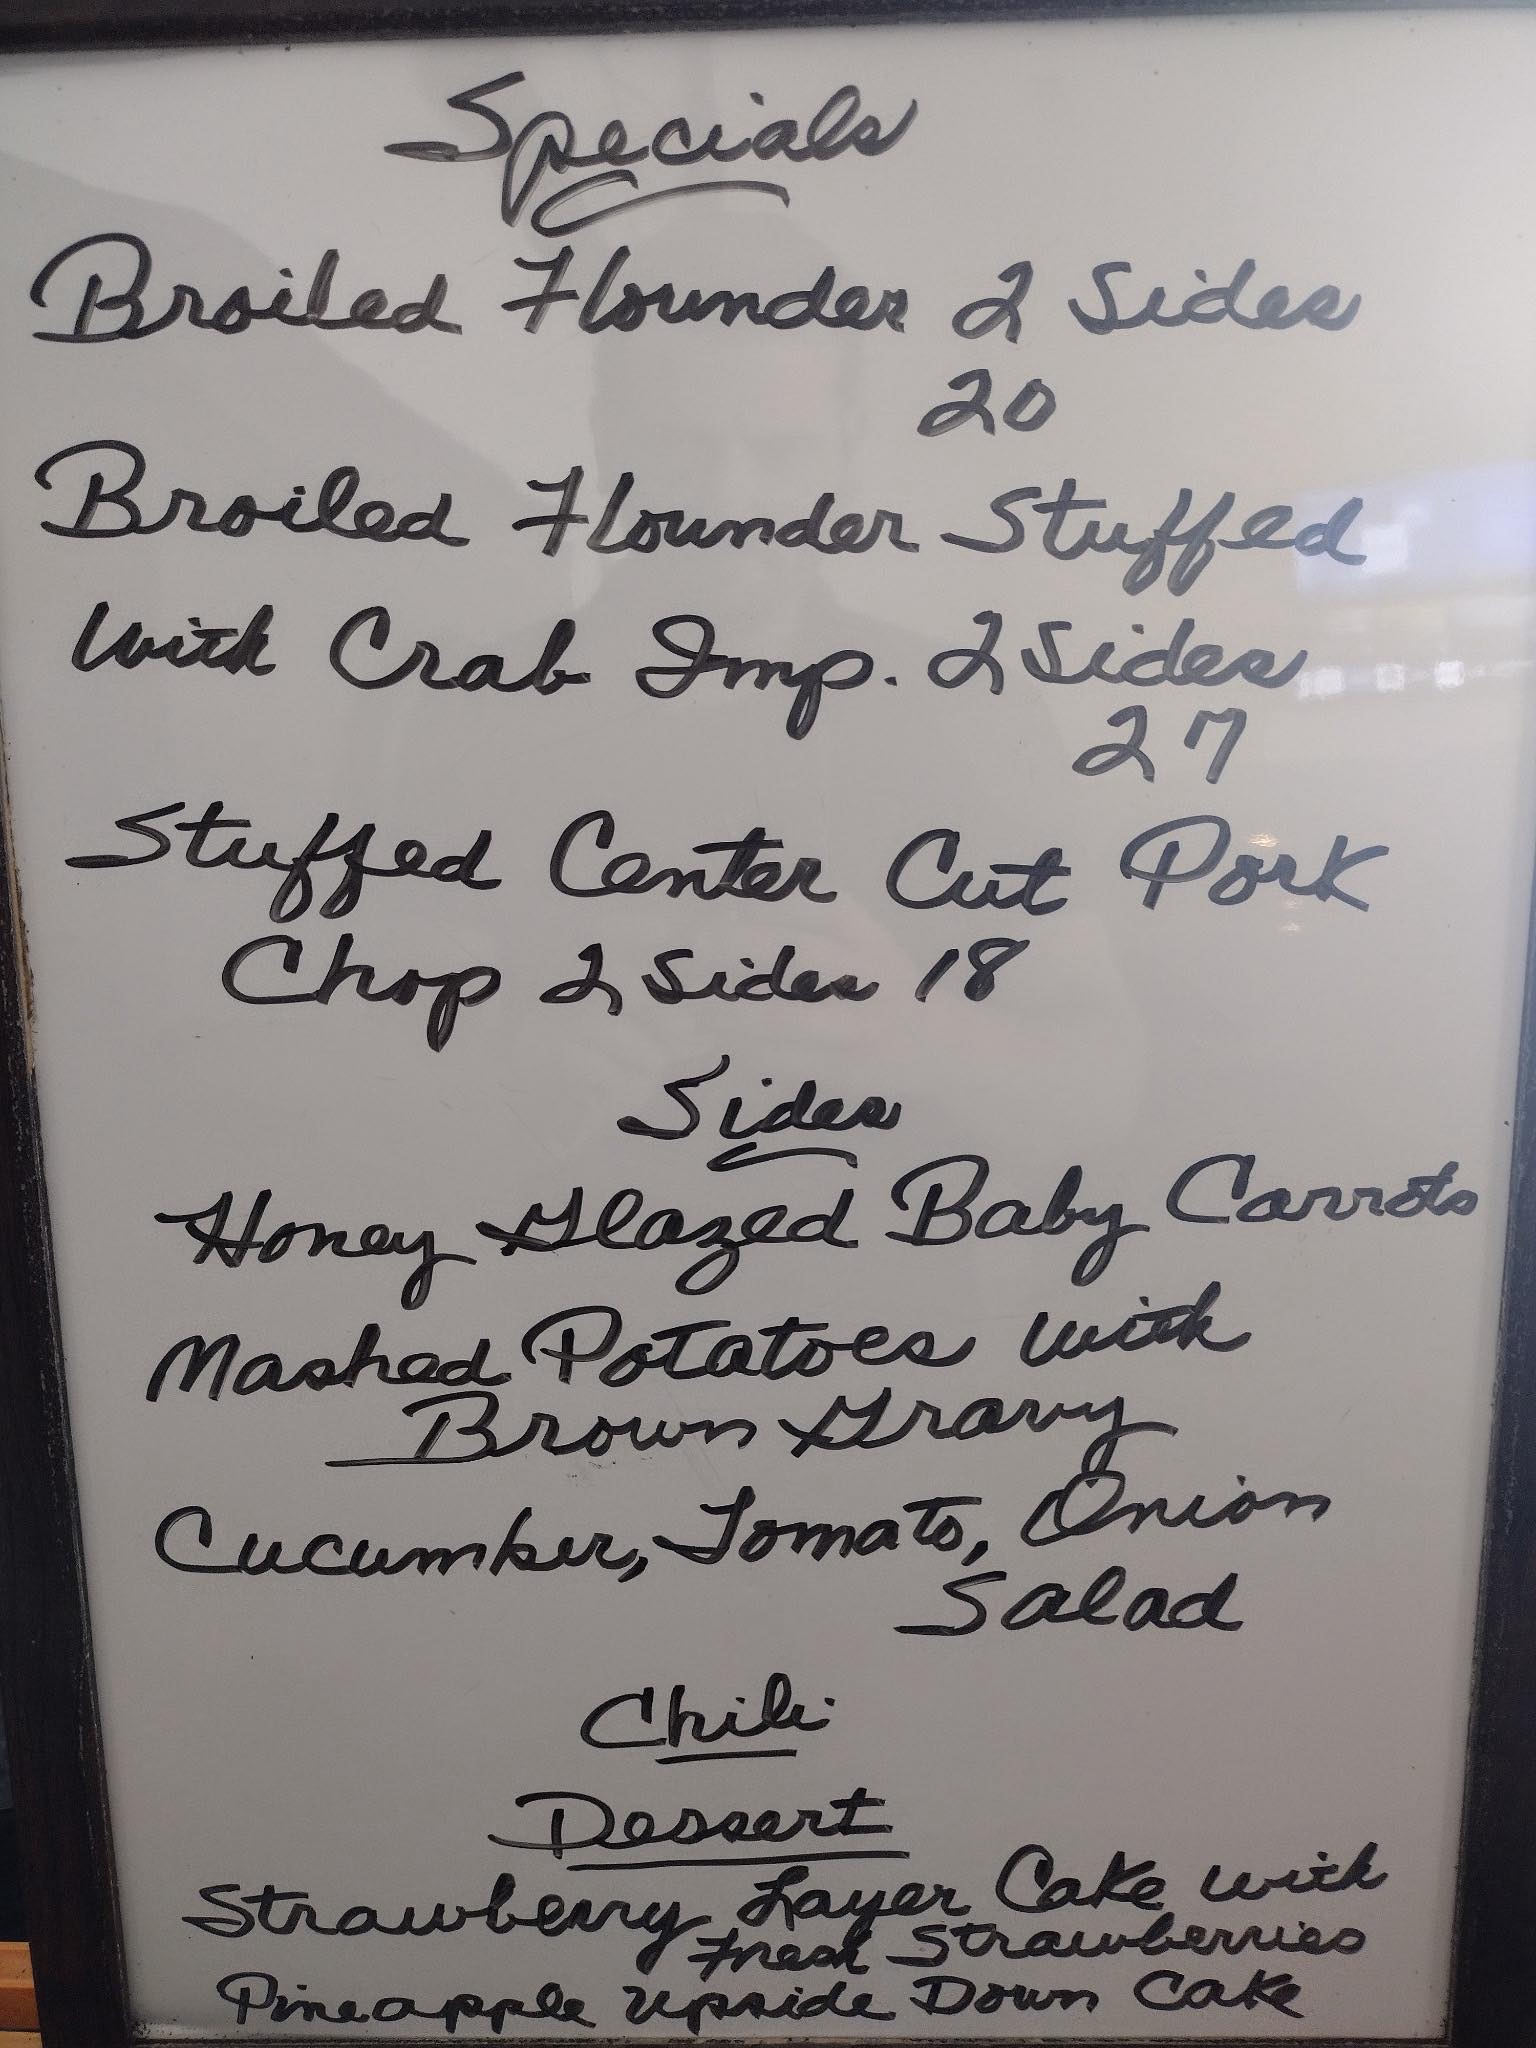 Specials
Broiled Flounder 2 Sides
20
Broiled Flounder Stuffed
with Crab Imp. 2 Sides
27
Stuffed Center Cut Pork
Chop 2 Sides 18
Sides
Honey Glazed Baby Carrots
Mashed Potatoes with
Brown Gravy
Cucumber, Tomato, Onion
Salad
Chili
Dessert
Strawberry Layer Cake with
Fresh Strawberries
Pineapple Upside Down Cake